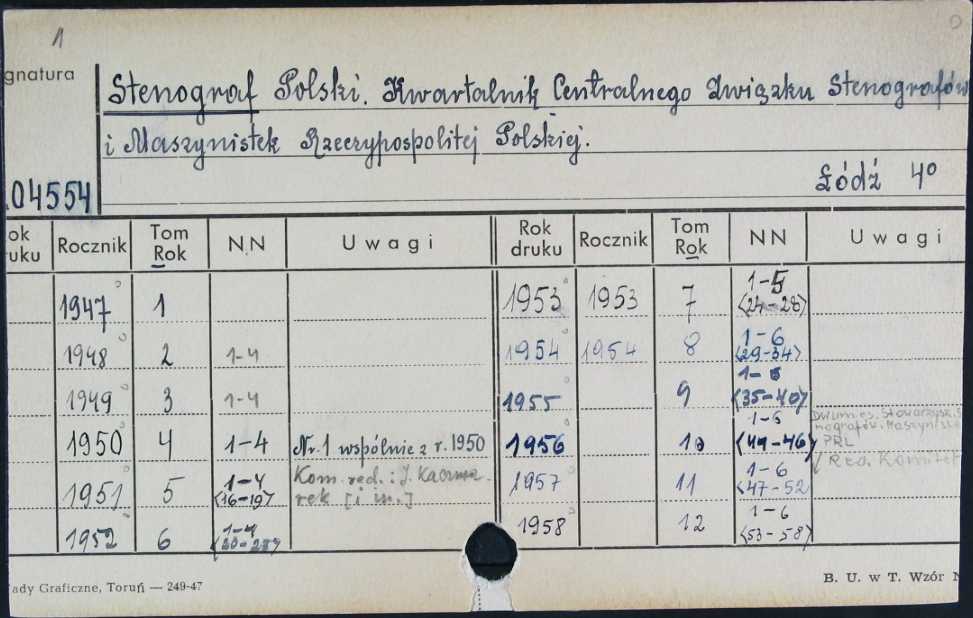 1
gnatura
Stenograf Polski. Kwartalnik Centralnego Związku Stenografów
i Maszynistek Rzeczypospolitej Polskiej.
Łódź 4°
04554
ok
ruku Rocznik Tom
Rok NN Uwagi Rok
druku Rocznik Tom
Rok NN Uwagi
1947 1 1953 1953 7 1-5
<24-28>
1948 2 1-4 1954 1954 8 1-6
<29-34>
1949 3 1-4 1955 9 1-6
<35-40>
1950 4 1-4 Nr. 1 wspólnie z r. 1950 1956 10 1-6
<41-46> Dwumies. Stowarzysz. S
nografów. Maszynistek
PRL
1951 5 1-4
<16-19> Kom. red.: J. Kaczma-
rek [i in.] 1957 11 1-6
<47-52 Red. Komitet
1952 6 1-4
<20-23> 1958 12 1-6
<53-58>
ady Graficzne, Toruń — 249-47
B. U. w T. Wzór N